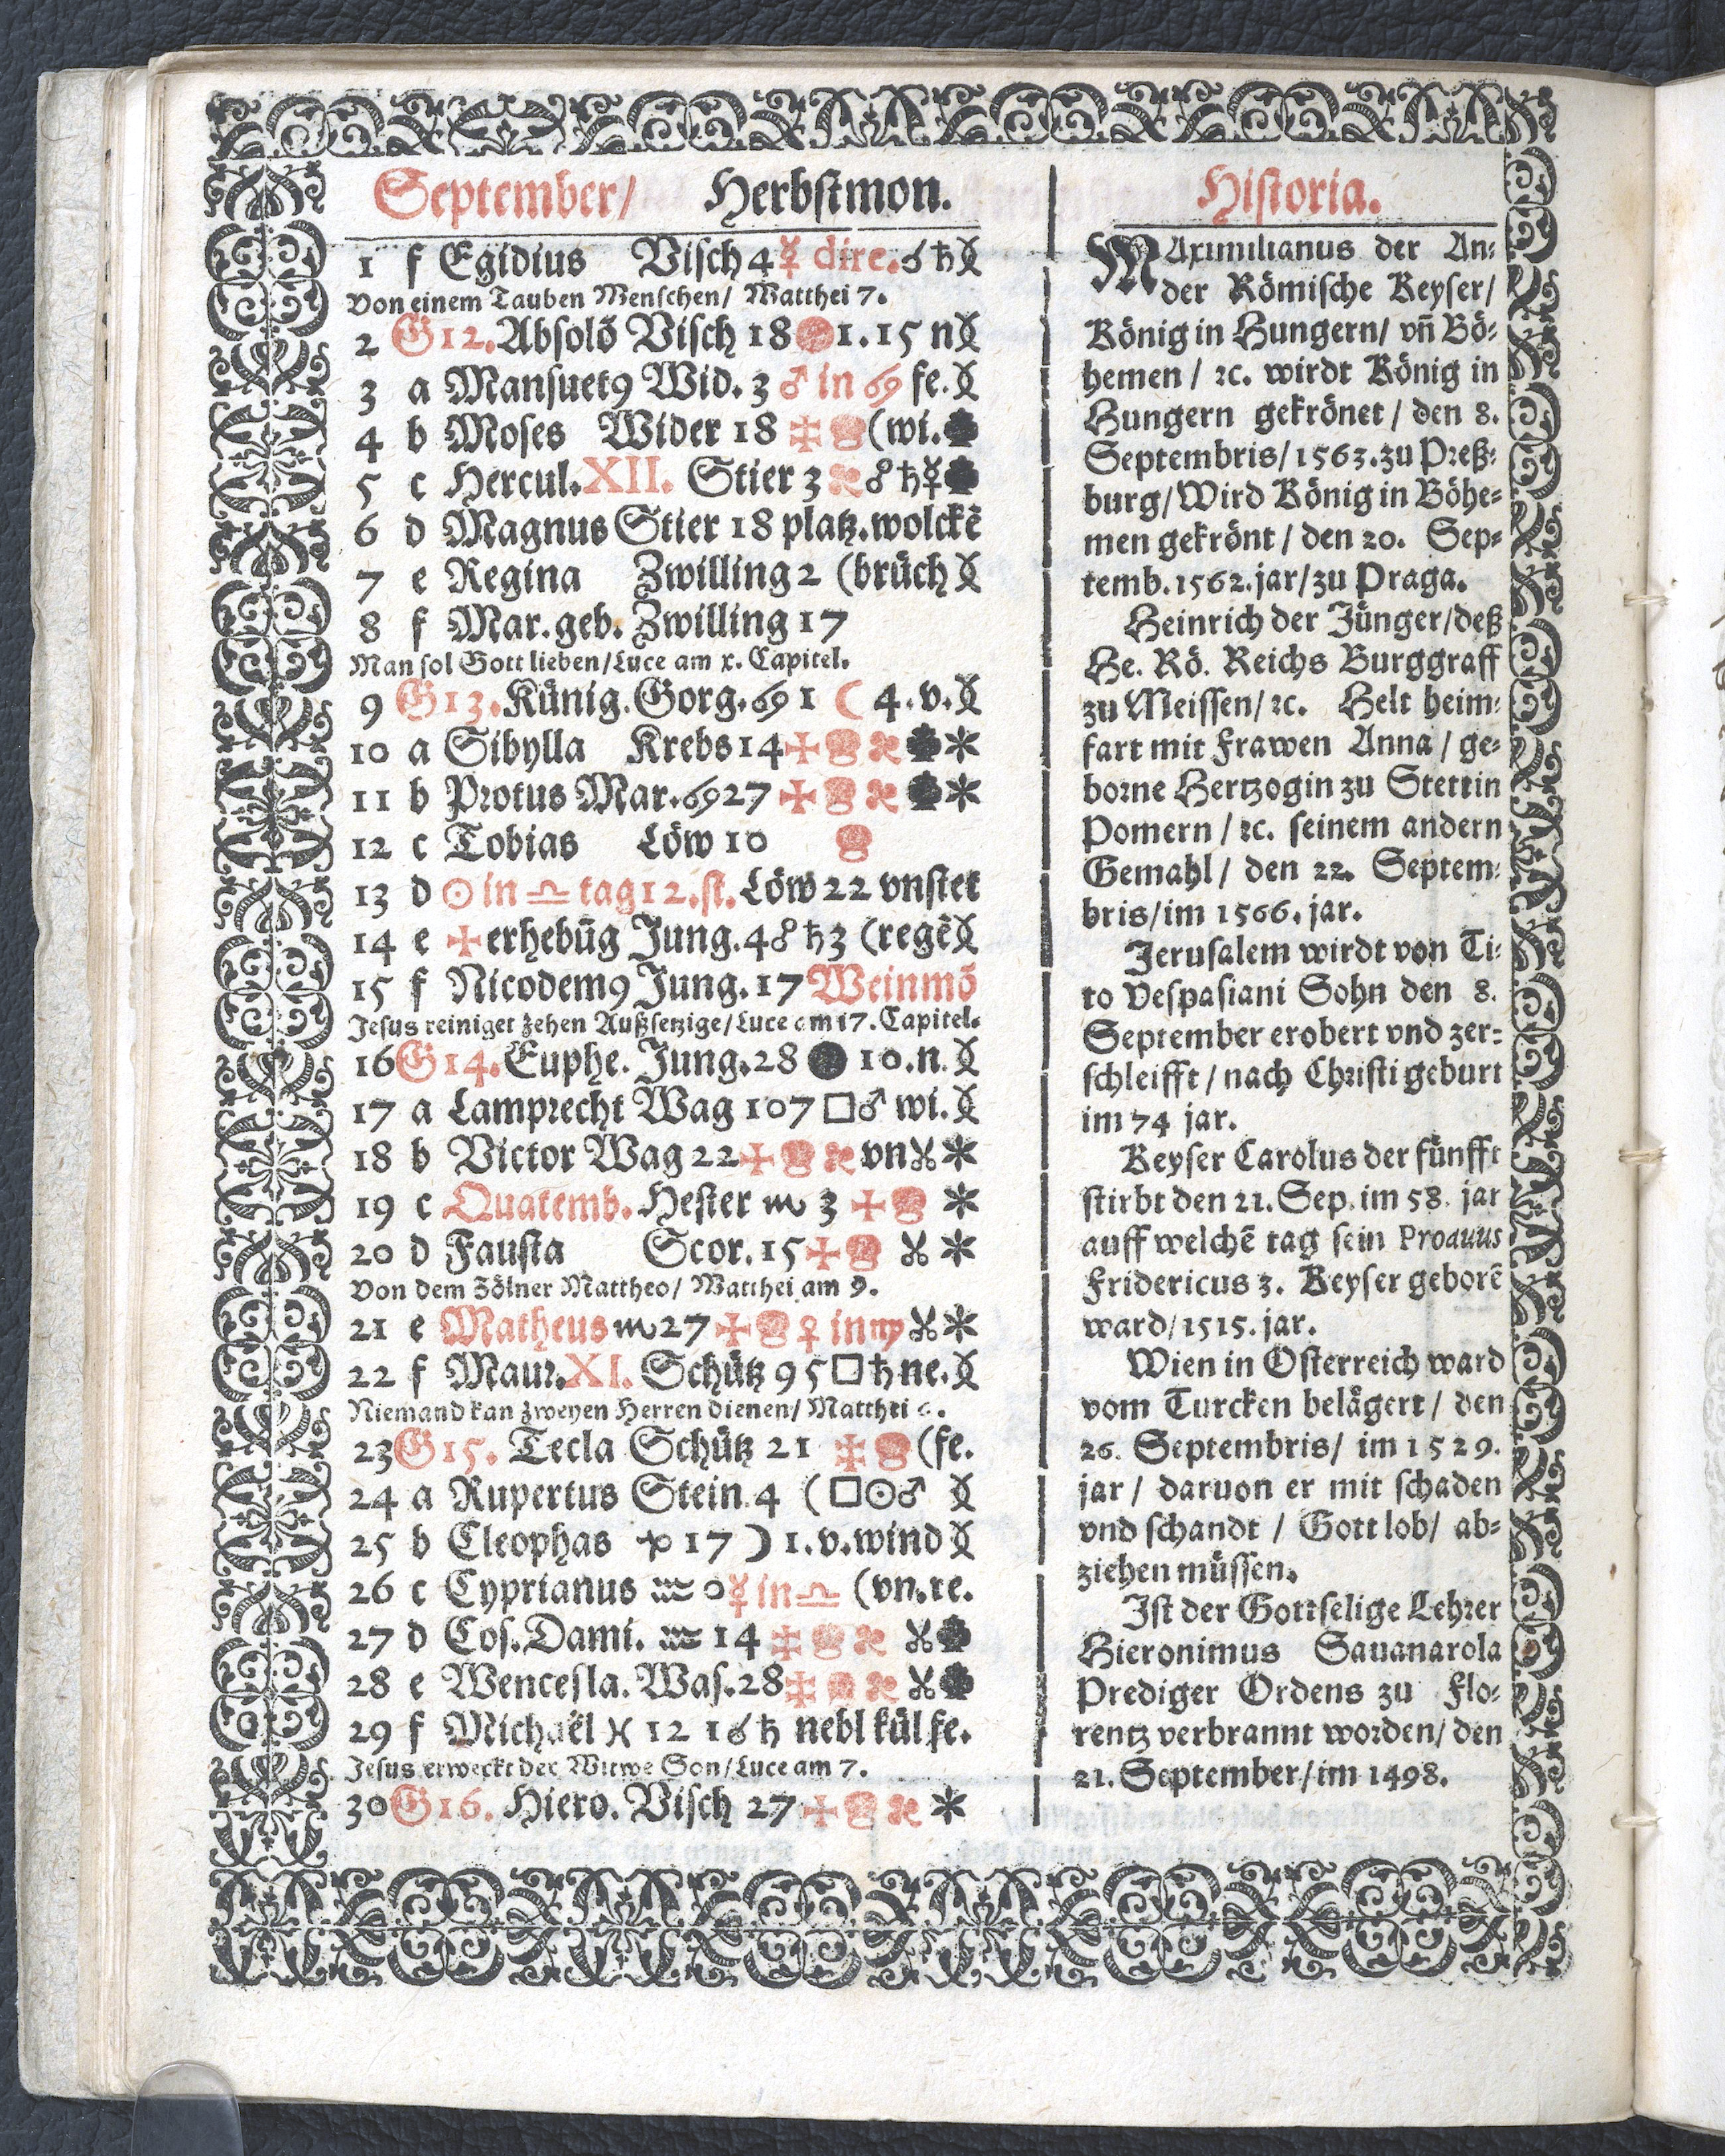 September/ Herbstmon.
1 f Egidius Visch 4 ☿ dire. ☌ ♄
Von einem Tauben Menschen/ Matthei 7.
2 G12. Absolõ Visch 18 1. 15 n
3 a Mansuet9 Wid. 3 ♂ in ♋ fe.
4 b Moses Wider 18 (wi.
5 c Hercul. XII. Stier 3 ☍ ♄ ☿
6 d Magnus Stier 18 platz. wolckẽ
7 e Regina Zwilling 2 (brüch
8 f Mar. geb. Zwilling 17
Man sol Gott lieben/ Luce am x. Capitel.
9 G13. Künig. Gorg. ♋ 1 ☾ 4. v.
10 a Sibylla Krebs 14
11 b Protus Mar. ♋ 27
12 c Tobias Löw 10
13 d ☉ in ♎ tag 12. st. Löw 22 vnstet
14 e ✠ erhebũg Jung. 4 ☍ ♄ 3 (regẽ
15 f Nicodem9 Jung. 17 Weinmõ
Jesus reiniget zehen Außsetzige/ Luce am 17. Capitel.
16 G14. Euphe. Jung. 28 ● 10. n.
17 a Lamprecht Wag 10 7 □ ♂ wi.
18 b Victor Wag 22 vn
19 c Quatemb. Hester ♏ 3
20 d Fausta Scor. 15
Von dem Zölner Mattheo/ Matthei am 9.
21 e Matheus ♏ 27 ♀ in ♍
22 f Maur. XI. Schütz 9 5 □ ♄ ne.
Niemand kan zweyen Herren dienen/ Matthei 6.
23 G15. Tecla Schütz 21 (fe.
24 a Rupertus Stein. 4 (□ ☉ ♂
25 b Cleophas 17 ☽ 1. v. wind
26 c Cyprianus ♒ 0 ☿ in ♎ (vn. re.
27 d Cos. Dami. ♒ 14
28 e Wencesla. Was. 28
29 f Michaël ♓ 12 1 ☌ ♄ nebl kül fe.
Jesus erweckt der Witwe Son/ Luce am 7.
30 G16. Hiero. Visch 27
Historia.
MAximilianus der An-
der Römische Keyser/
König in Hungern/ vñ Bö-
hemen / ꝛc. wirdt König in
Hungern gekrönet / den 8.
Septembris/ 1563. zu Preß-
burg/ Wird König in Böhe-
men gekrönt / den 20. Sep-
temb. 1562. jar/ zu Praga.
Heinrich der Jünger/ deß
He. Rö. Reichs Burggraff
zu Meissen/ ꝛc. Helt heim-
fart mit Frawen Anna / ge-
borne Hertzogin zu Stettin
Pomern / ꝛc. seinem andern
Gemahl / den 22. Septem-
bris/ im 1566. jar.
Jerusalem wirdt von Ti-
to Vespasiani Sohn den 8.
September erobert vnd zer-
schleifft / nach Christi geburt
im 74 jar.
Keyser Carolus der fünfft
stirbt den 21. Sep. im 58. jar
auff welchẽ tag sein Proauus
Fridericus 3. Keyser geborẽ
ward/ 1515. jar.
Wien in Osterreich ward
vom Turcken belägert / den
26. Septembris/ im 1529.
jar / daruon er mit schaden
vnd schandt / Gott lob/ ab-
ziehen müssen.
Ist der Gottselige Lehrer
Hieronimus Sauanarola
Prediger Ordens zu Flo-
rentz verbrannt worden/ den
21. September/ im 1498.